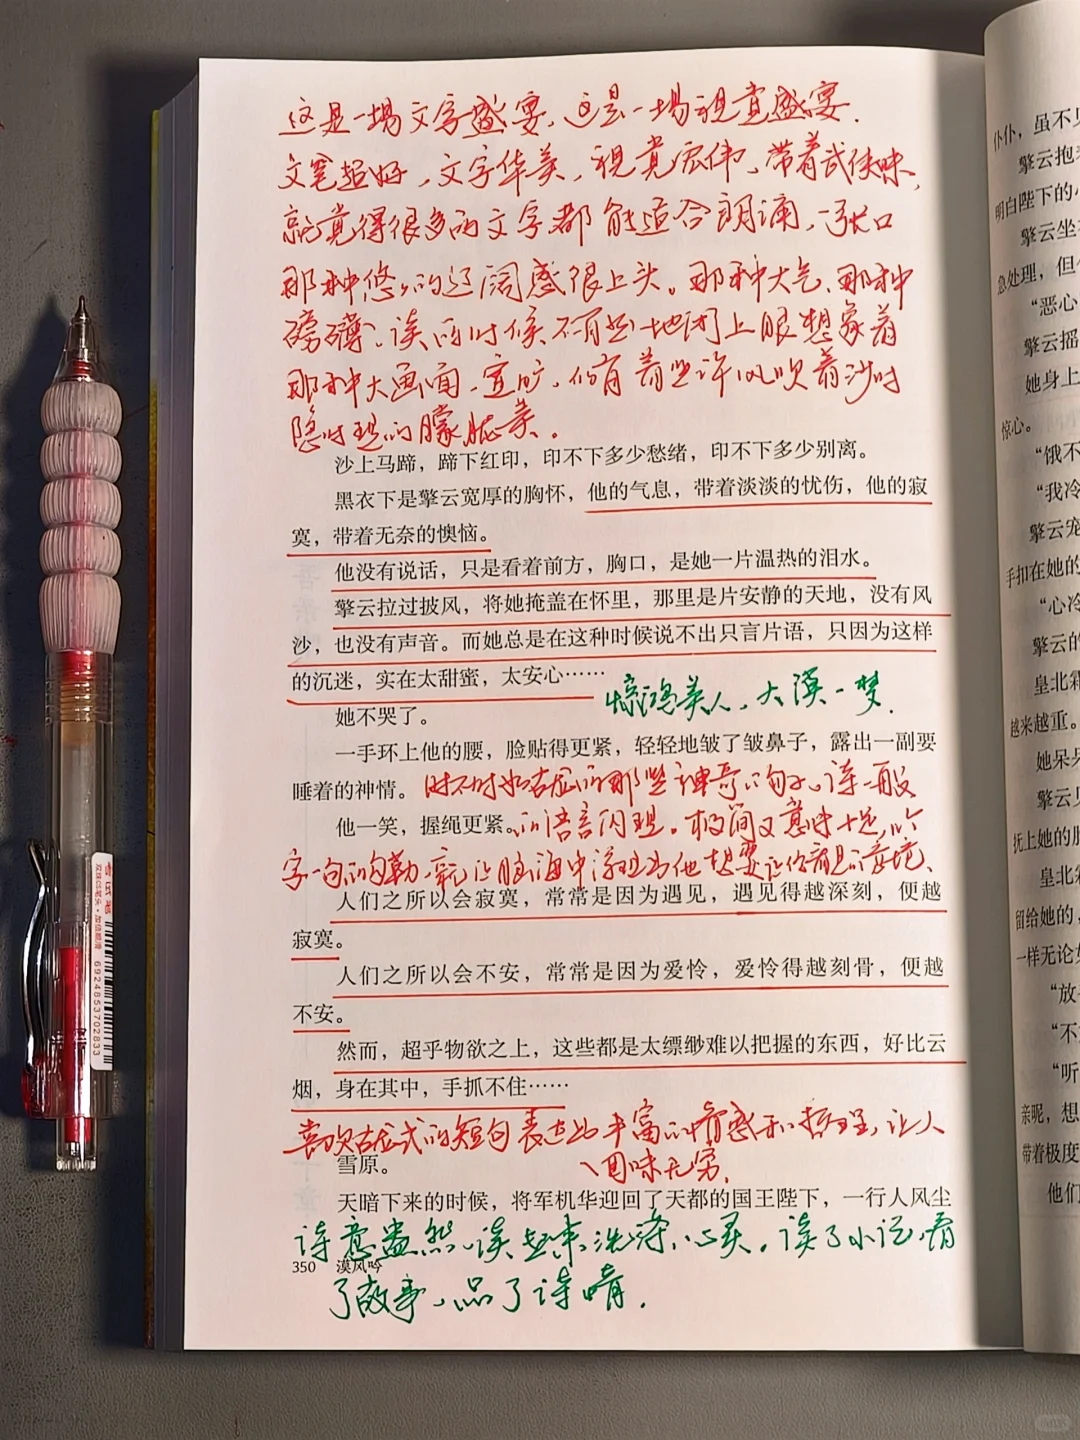 这是一場文字盛宴，这是一場視觉盛宴．
文笔超好，文字华美，視觉宏伟，带着武侠味，
就觉得很多的文字都能适合朗诵，一张口
那种悠悠的辽阔感很上头。那种大气、那种
磅礴、读的时候不自觉地闭上眼想象着
那种大画面，宽旷，仿有着些许风吹着沙时
隐时现的朦胧美．
沙上马蹄，蹄下红印，印不下多少愁绪，印不下多少别离。
黑衣下是擎云宽厚的胸怀，他的气息，带着淡淡的忧伤，他的寂
寞，带着无奈的懊恼。
他没有说话，只是看着前方，胸口，是她一片温热的泪水。
擎云拉过披风，将她掩盖在怀里，那里是片安静的天地，没有风
沙，也没有声音。而她总是在这种时候说不出只言片语，只因为这样
的沉迷，实在太甜蜜，太安心……
惊鸿美人，大漠一梦．
她不哭了。
一手环上他的腰，脸贴得更紧，轻轻地皱了皱鼻子，露出一副要
睡着的神情。
时不时如古龙的那些神奇的句子，诗一般
他一笑，握绳更紧。
的语言闪现。极简又意味十足，
字一句的勾勒，就让脑海中浮现出他想要让你看见的意境、
人们之所以会寂寞，常常是因为遇见，遇见得越深刻，便越
寂寞。
人们之所以会不安，常常是因为爱怜，爱怜得越刻骨，便越
不安。
然而，超乎物欲之上，这些都是太缥缈难以把握的东西，好比云
烟，身在其中，手抓不住……
喜欢古龙式的短句表达出丰富的情感和哲理，让人
回味无穷．
雪原。
天暗下来的时候，将军机华迎回了天都的国王陛下，一行人风尘
诗意盎然，读起来洗涤心灵。读了小说，看
350 漠风吟
了故事，品了诗情．
仆仆，虽不见
擎云抱
明白陛下的
擎云坐
急处理，但
“恶心
擎云摇
她身上
惊心。
“饿不
“我冷
擎云宠
手扣在她的
“心冷
擎云的
皇北霜
越来越重。
她呆呆
擎云见
抚上她的
皇北霜
留给她的，
一样无论
“放
“不
“听
亲昵，想
带着极度
他们
考试笔
6924853702833